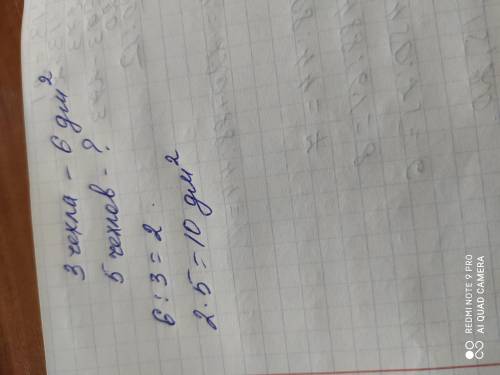 3 чехла - 6 дм²
5 чехлов - ?
6 : 3 = 2
2 · 5 = 10 дм²
REDMI NOTE 9 PRO
AI QUAD CAMERA